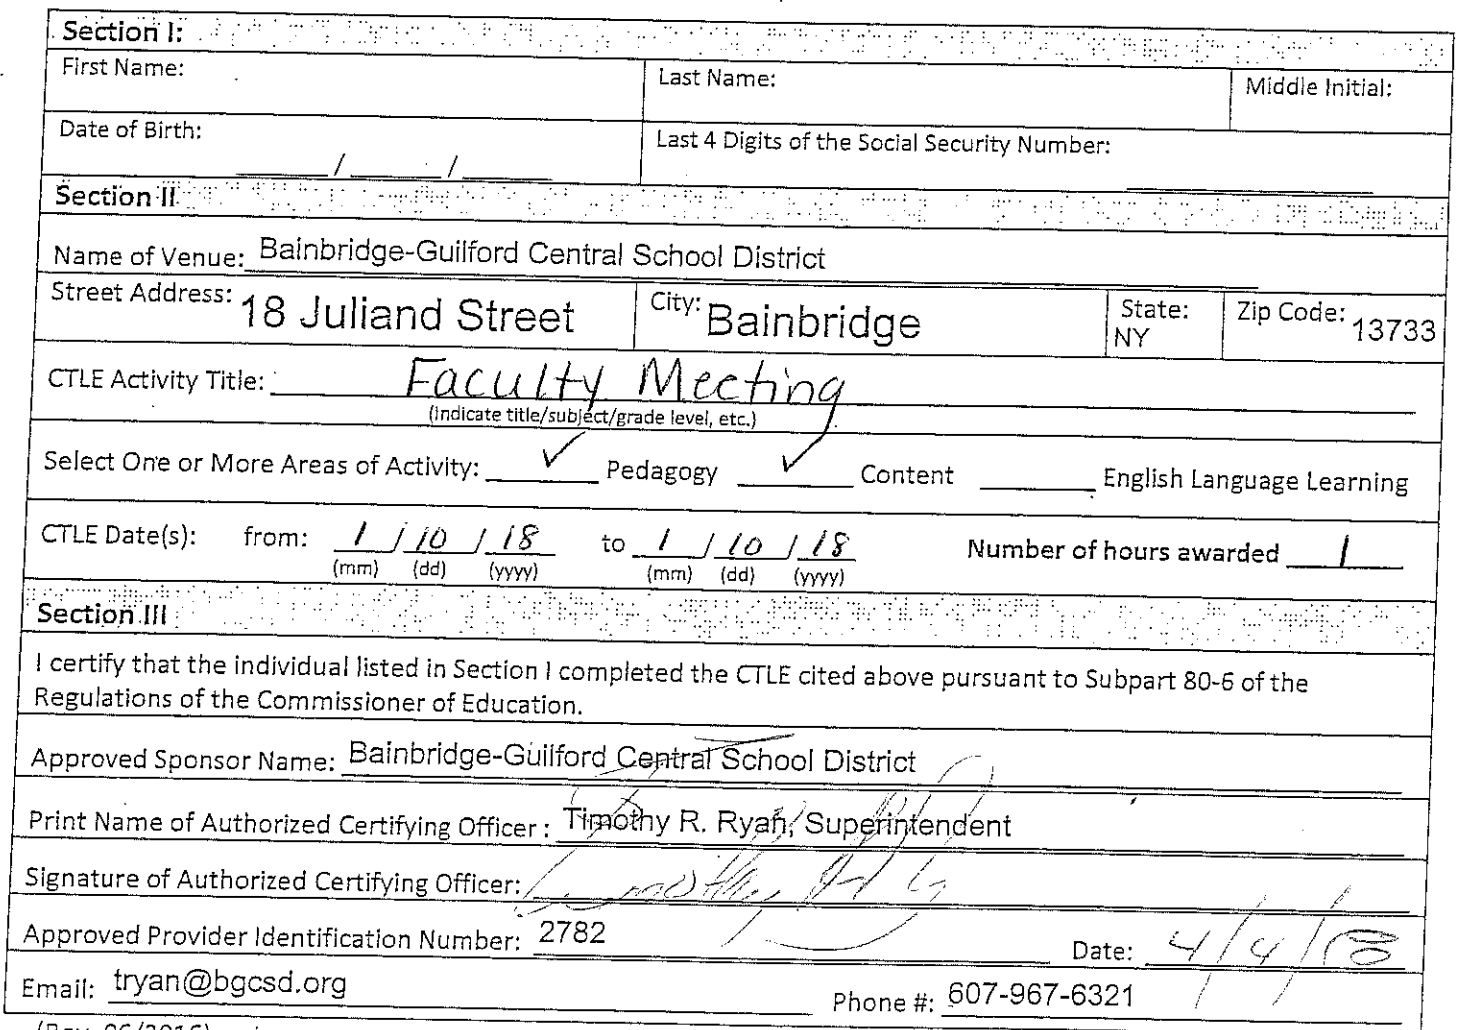 Section I:
First Name: Last Name: Middle Initial:
Date of Birth: Last 4 Digits of the Social Security Number:
/ /
Section II
Name of Venue: Bainbridge-Guilford Central School District
Street Address: 18 Juliand Street City: Bainbridge State: NY Zip Code: 13733
CTLE Activity Title: Faculty Meeting
(Indicate title/subject/grade level, etc.)
Select One or More Areas of Activity: ✓ Pedagogy ✓ Content English Language Learning
CTLE Date(s): from: 1 / 10 / 18 to 1 / 10 / 18 Number of hours awarded 1
(mm) (dd) (yyyy) (mm) (dd) (yyyy)
Section III
I certify that the individual listed in Section I completed the CTLE cited above pursuant to Subpart 80-6 of the
Regulations of the Commissioner of Education.
Approved Sponsor Name: Bainbridge-Guilford Central School District
Print Name of Authorized Certifying Officer : Timothy R. Ryan, Superintendent
Signature of Authorized Certifying Officer:
Approved Provider Identification Number: 2782 Date: 4/4/18
Email: tryan@bgcsd.org Phone #: 607-967-6321